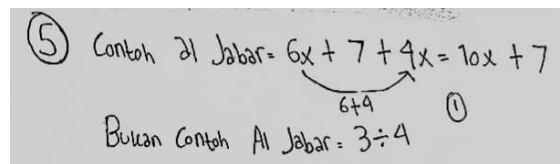 ⑤ Contoh al Jabar = 6x + 7 + 4x = 10x + 7
6+4 ①
Bukan Contoh Al Jabar = 3÷4